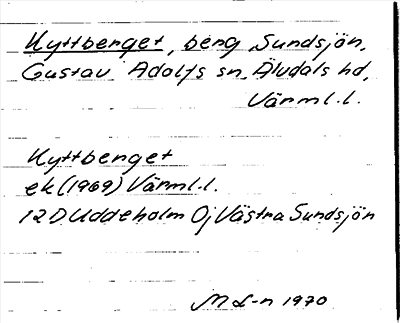 Kyttberget, berg, Sundsjön,
Gustav Adolfs sn, Älvdals hd,
Värml. l.
Kyttberget
ek (1969) Värml. l.
12 D Uddeholm Oj Västra Sundsjön
M L-n 1970